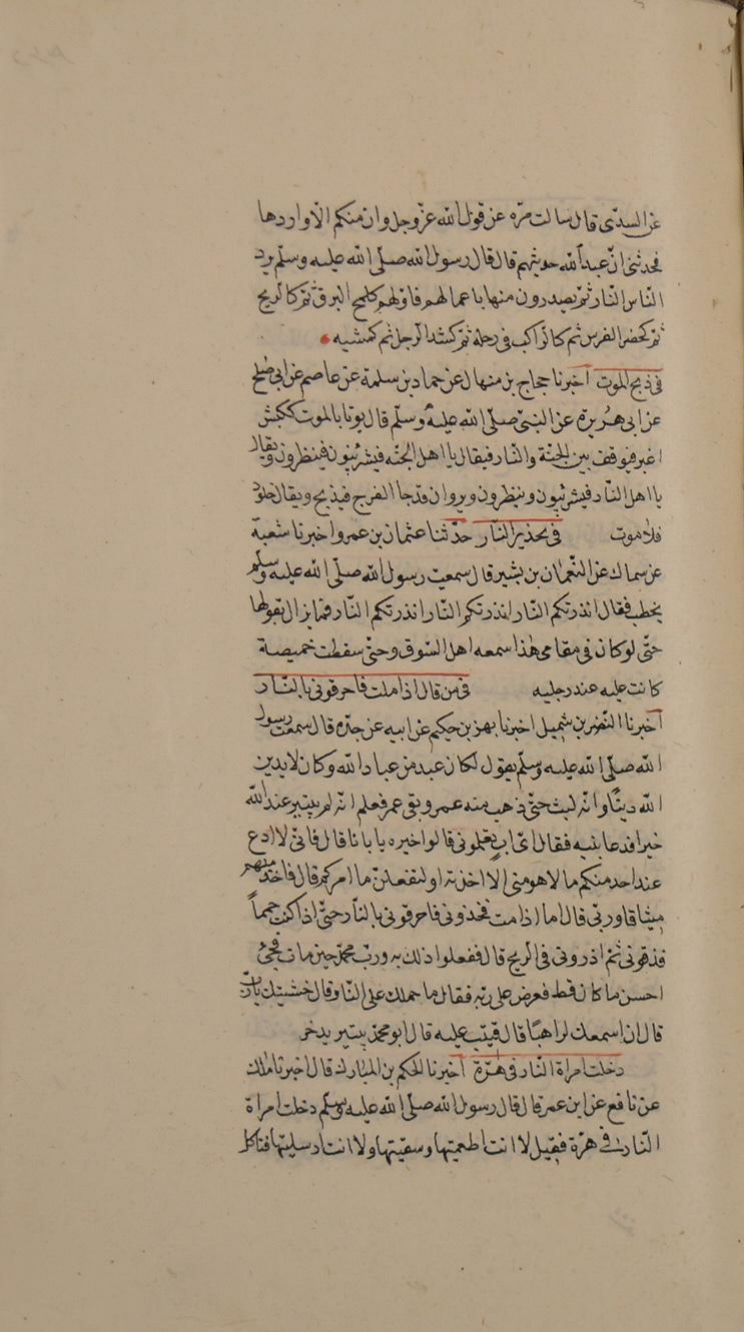 عن السدى قال سالت مره عن قول الله عز وجل وان منكم الا واردها
فحدثنى ان عبد الله حدثهم قال قال رسول الله صلى الله عليه وسلم يرد
الناس النار ثم يصدرون منها باعمالهم فاولهم كلمح البرق ثم كالريح
ثم كحضر الفرس ثم كالراكب فى رحله ثم كشد الرجل ثم كمشيه
فى ذبح الموت اخبرنا حجاج بن منهال عن حماد بن سلمة عن عاصم عن ابى صلح
عن ابى هريرة عن النبى صلى الله عليه وسلم قال يوتا بالموت ككبش
اغبر فيوقف بين الجنة والنار فيقال يا اهل الجنه فيشرئبون فينظرون ويقال
يا اهل النار فيشرئبون وينظرون ويروان قد جا الفرج فيذبح ويقال خلود
فلا موت فى تحذير النار حدثنا عثمان بن عمرو اخبرنا شعبة
عن سماك عن النعمان بن بشير قال سمعت رسول الله صلى الله عليه وسلم
يخطب فقال انذرتكم النار انذرتكم النار انذرتكم النار فما يزال يقولها
حتى لو كان فى مقامى هذا سمعه اهل السوق وحتى سقطت خميصة
كانت عليه عند رجليه فى من قال اذا مات فاحرقونى بالنار
اخبرنا النضر بن شميل اخبرنا بهز بن حكيم عن ابيه عن جده قال سمعت رسول
الله صلى الله عليه وسلم يقول لكان عبد من عباد الله وكان لا يدين
الله دينا وانه لبث حتى ذهب منه عمر وبقى عمر فعلم انه لم يبتير عند الله
خيرا فدعا بنيه فقال اى اب تعلمونى قالوا خيره يا بانا قال فانى لا ادع
عند احد منكم مالا هو منى الا اخذته او لتفعلن ما امركم قال فاخذ منهم
ميثاقا وربى قال اما اذا مت فخذونى فاحرقونى بالنار حتى اذا كنت حمما
فدقونى ثم اذرونى فى الريح قال ففعلوا ذلك به ورب محمد حين مات فجئ
احسن ما كان قط فعرض على ربه فقال ما حملك على النار قال خشيتك يا رب
قال ان اسمعك لراهبا قال فتيب عليه قال ابو محمد يبتير يدخر
دخلت امراة النار فى هرة اخبرنا الحكم بن المبارك قال اخبرنا ملك
عن نافع عن ابن عمر قال قال رسول الله صلى الله عليه وسلم دخلت امراة
النار فى هرة فقيل لا انت اطعمتها وسقيتها ولا انت ارسلتها فتاكل